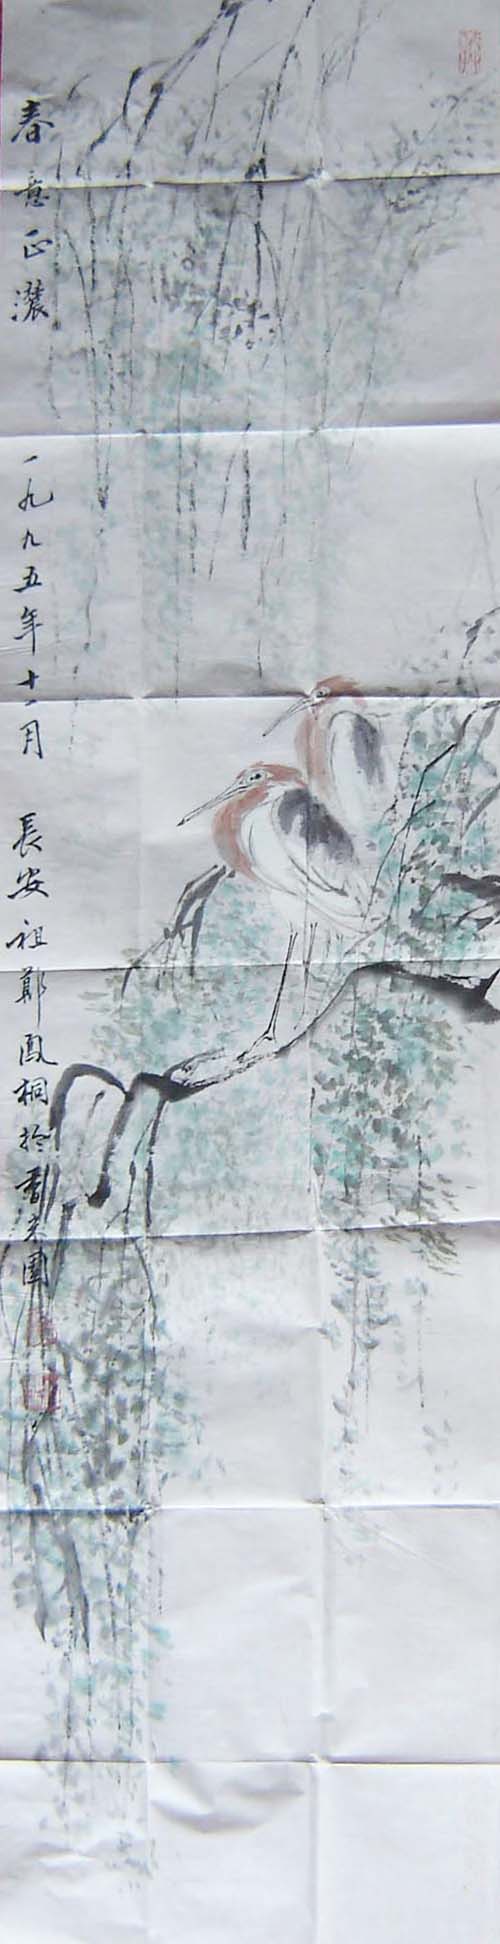 春意正濃 一九九五年十一月 長安祖鄭鳳桐於香光園